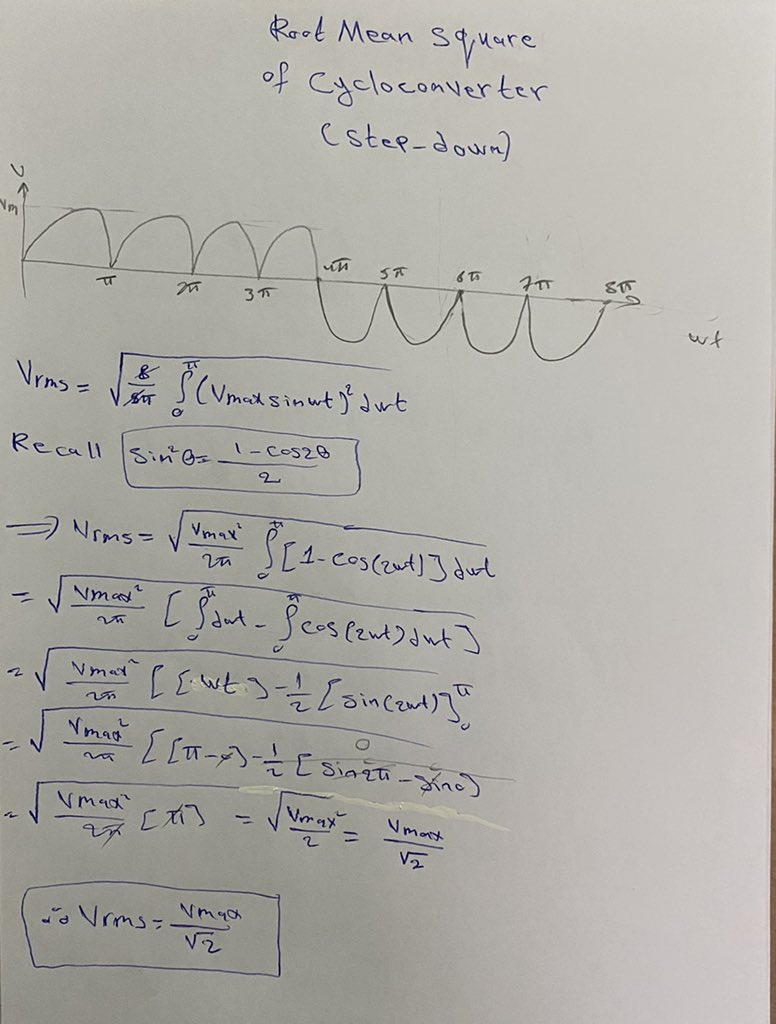 Root Mean Square
of Cycloconverter
(Step-down)
V
Vm
π 2π 3π 4π 5π 6π 7π 8π
wt
Vrms = √(8/8π ∫₀^π (Vmax sinwt)² dwt)
Recall Sin²θ = (1 - cos2θ)/2
⇒ Vrms = √(Vmax²/2π ∫₀^π [1 - cos(2wt)] dwt)
= √(Vmax²/2π [∫₀^π dwt - ∫₀^π cos(2wt) dwt])
= √(Vmax²/2π [[wt] - 1/2 [sin(2wt)]₀^π
= √(Vmax²/2π [[π - 0] - 1/2 [sin2π - sin0]
0
= √(Vmax²/2π [π]) = √(Vmax²/2) = Vmax/√2
∴ Vrms = Vmax/√2